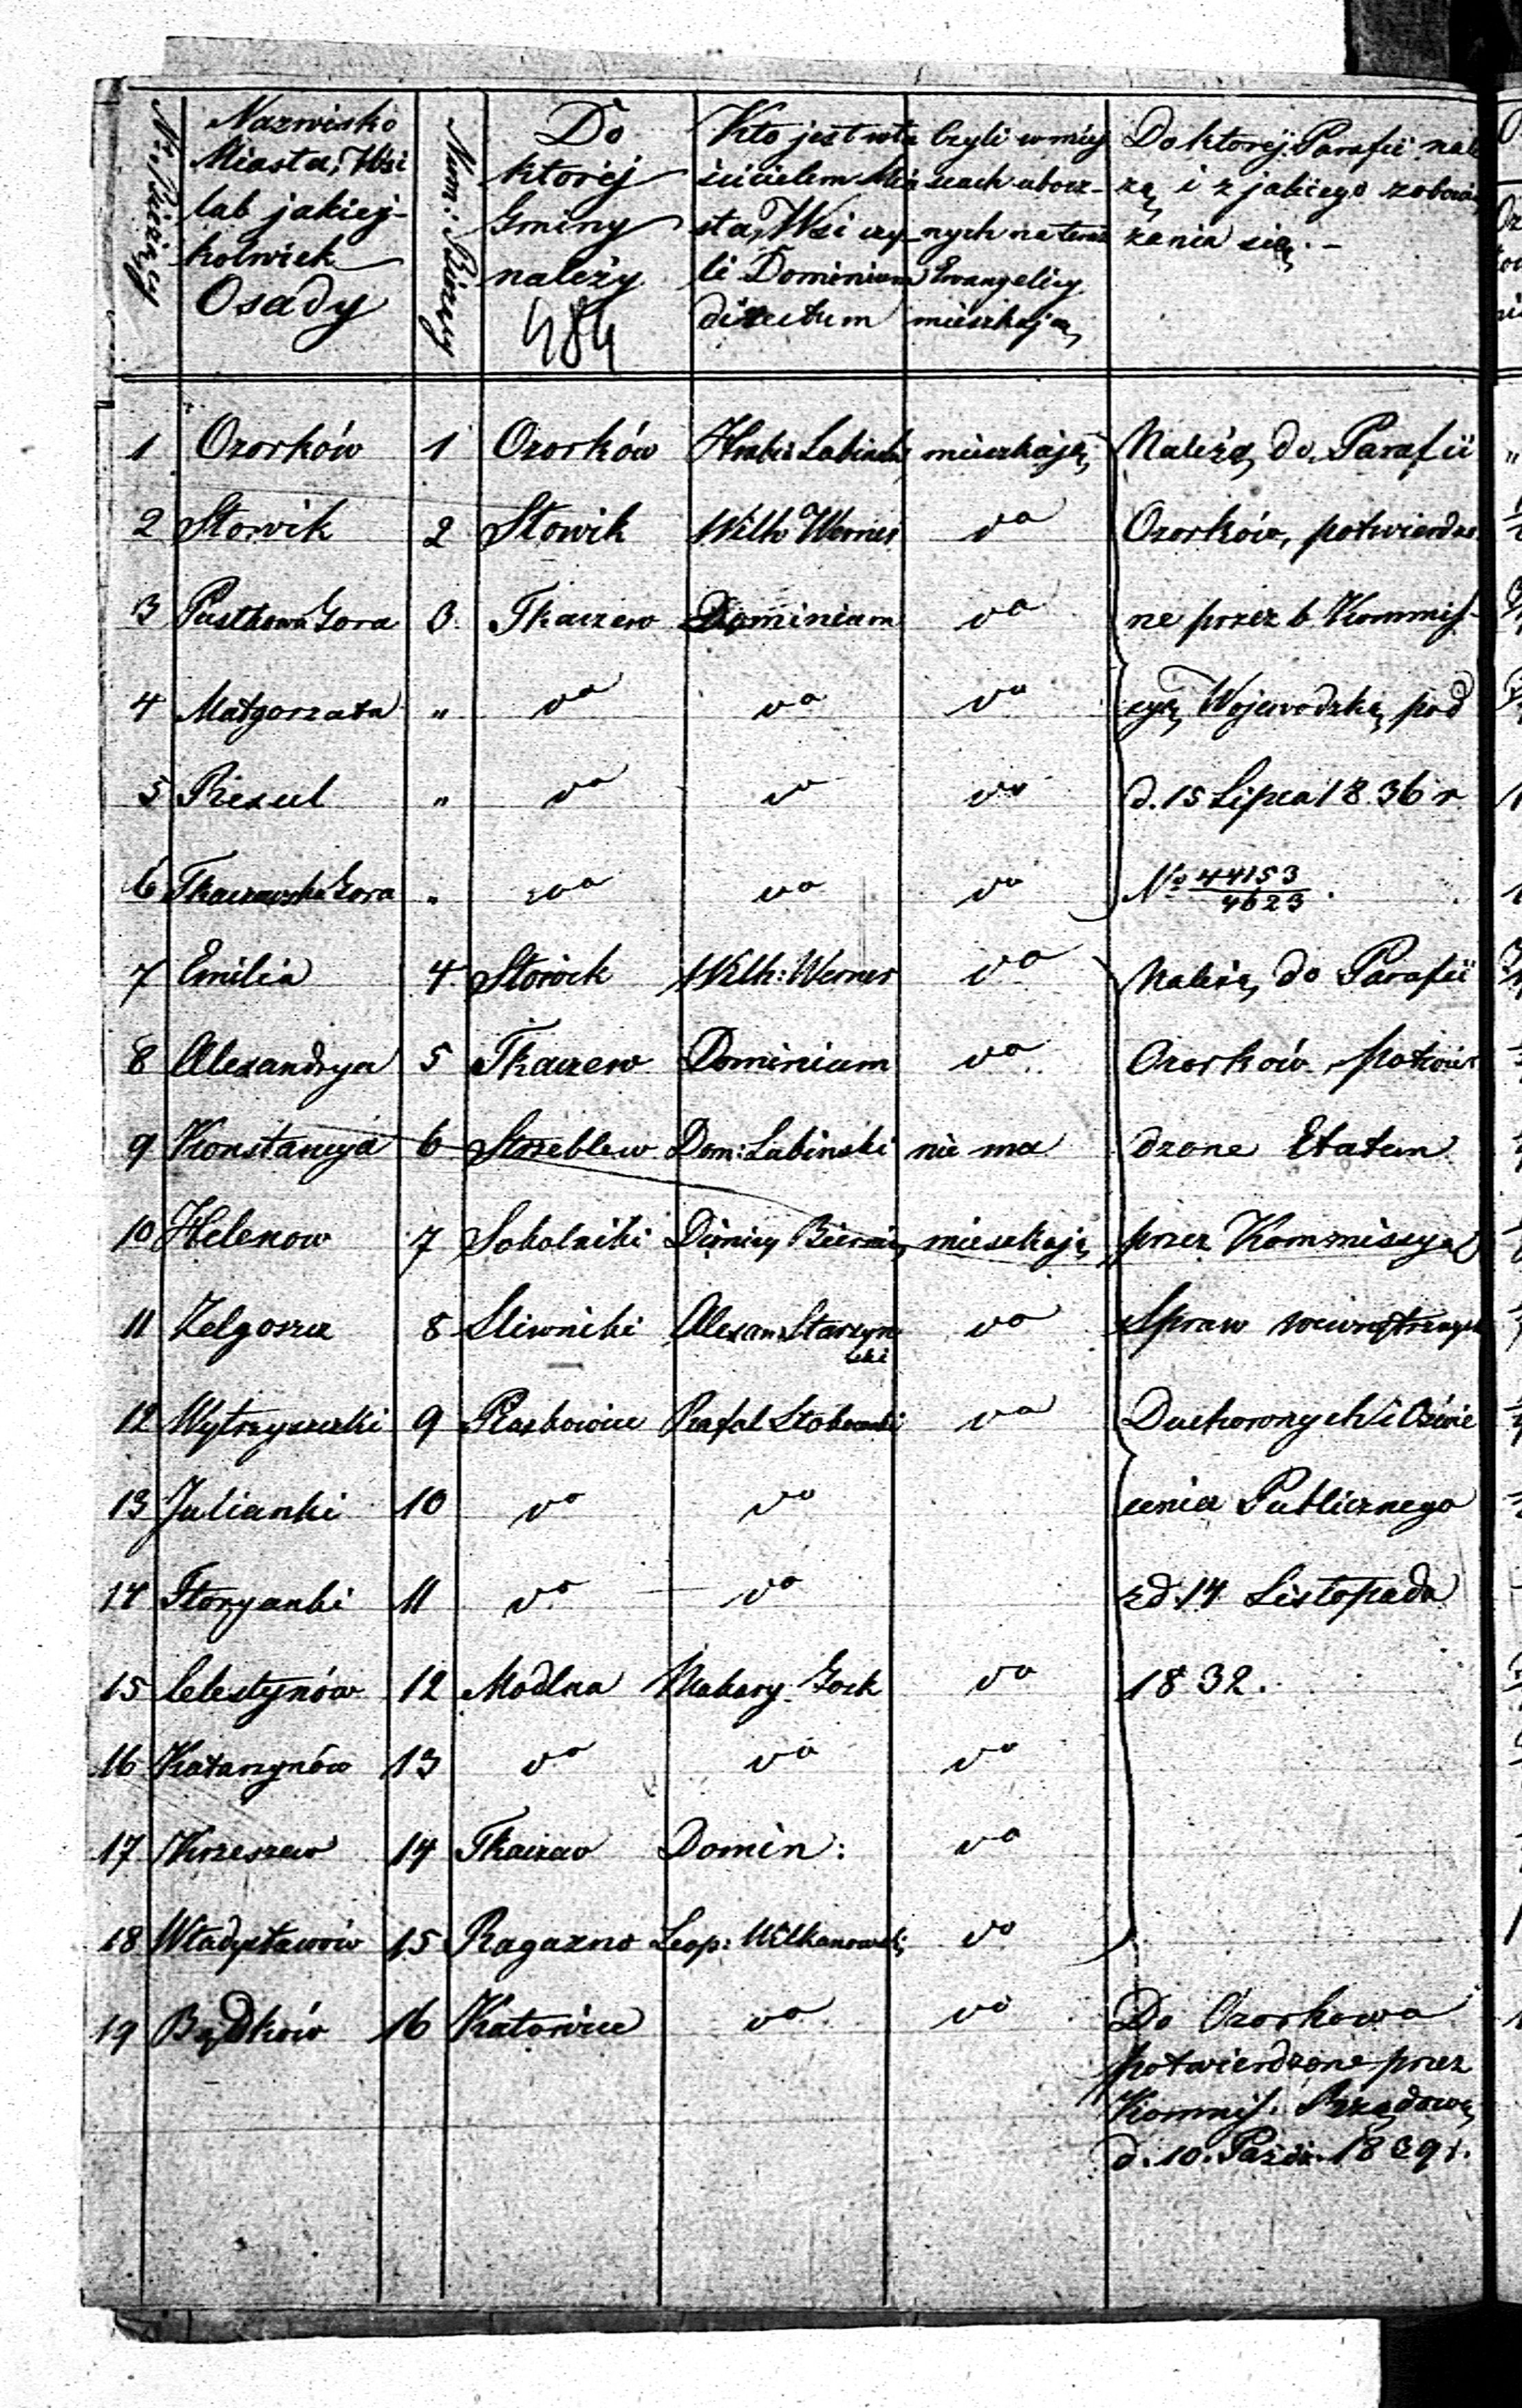 Nr. Bieżący
Nazwisko
Miasta, Wsi
lub jakiej-
kolwiek
Osady
Num: Bieżący
Do
ktorej
Gminy
należy
484
Kto jest wła
ścicielem Mia
sta, Wsi czy-
li Dominium
directum
Czyli w miej
scach ubocz-
nych na teraz
Ewangelicy
mieszkają
Do ktorej Parafii nale
żą, i z jakiego zobowią
zania się.-
1 Ozorków 1 Ozorków Hrabia mieszkają Należą do Parafii
2 Słowik 2 Słowik Wilh Werner do Ozorków, potwierdzo
3 Pustkowa Gora 3. Tkaczew Dominium do ne przez b. Kommis-
4 Małgorzata " do do do cyą Wojewodzką pod
5 " do do do d. 15 Lipca 1836 r
6 Tkaczewska Gora " do do do No 44153/4623.
7 Emilia 4. Słowik Wilh: Werner do Należą do Parafii
8 Alexandrya 5 Tkaczew Dominium do Ozorków, potwier
9 Konstancya 6 Strzeblew Dom: Łubinski nie ma dzone Etatem
10 Helenow 7 Sokolniki mieszkają przez Kommissyą
11 Zelgoszcz 8 Sliwniki Alexan Starzyn do Spraw wewnętrznych
ski
12 Wytrzyszczki 9 Piaskowice Rafał do Duchownych i Oświe
13 Julianki 10 do do cenia Publicznego
14 Floryanki 11 do do z d. 14 Listopada
15 Celestynów 12 Modlna Makary Gock do 1832.
16 Katarzynów 13 do do do
17 Krzeszew 14 Tkaczew Domin: do
18 Władysławów 15 Rogaźno Leop: Wilkanowski do
19 Bądków 16 Katowice do do Do Ozorkowa
potwierdzone przez
Kommis. Rządową
d. 10. Paźdz. 1839 r.